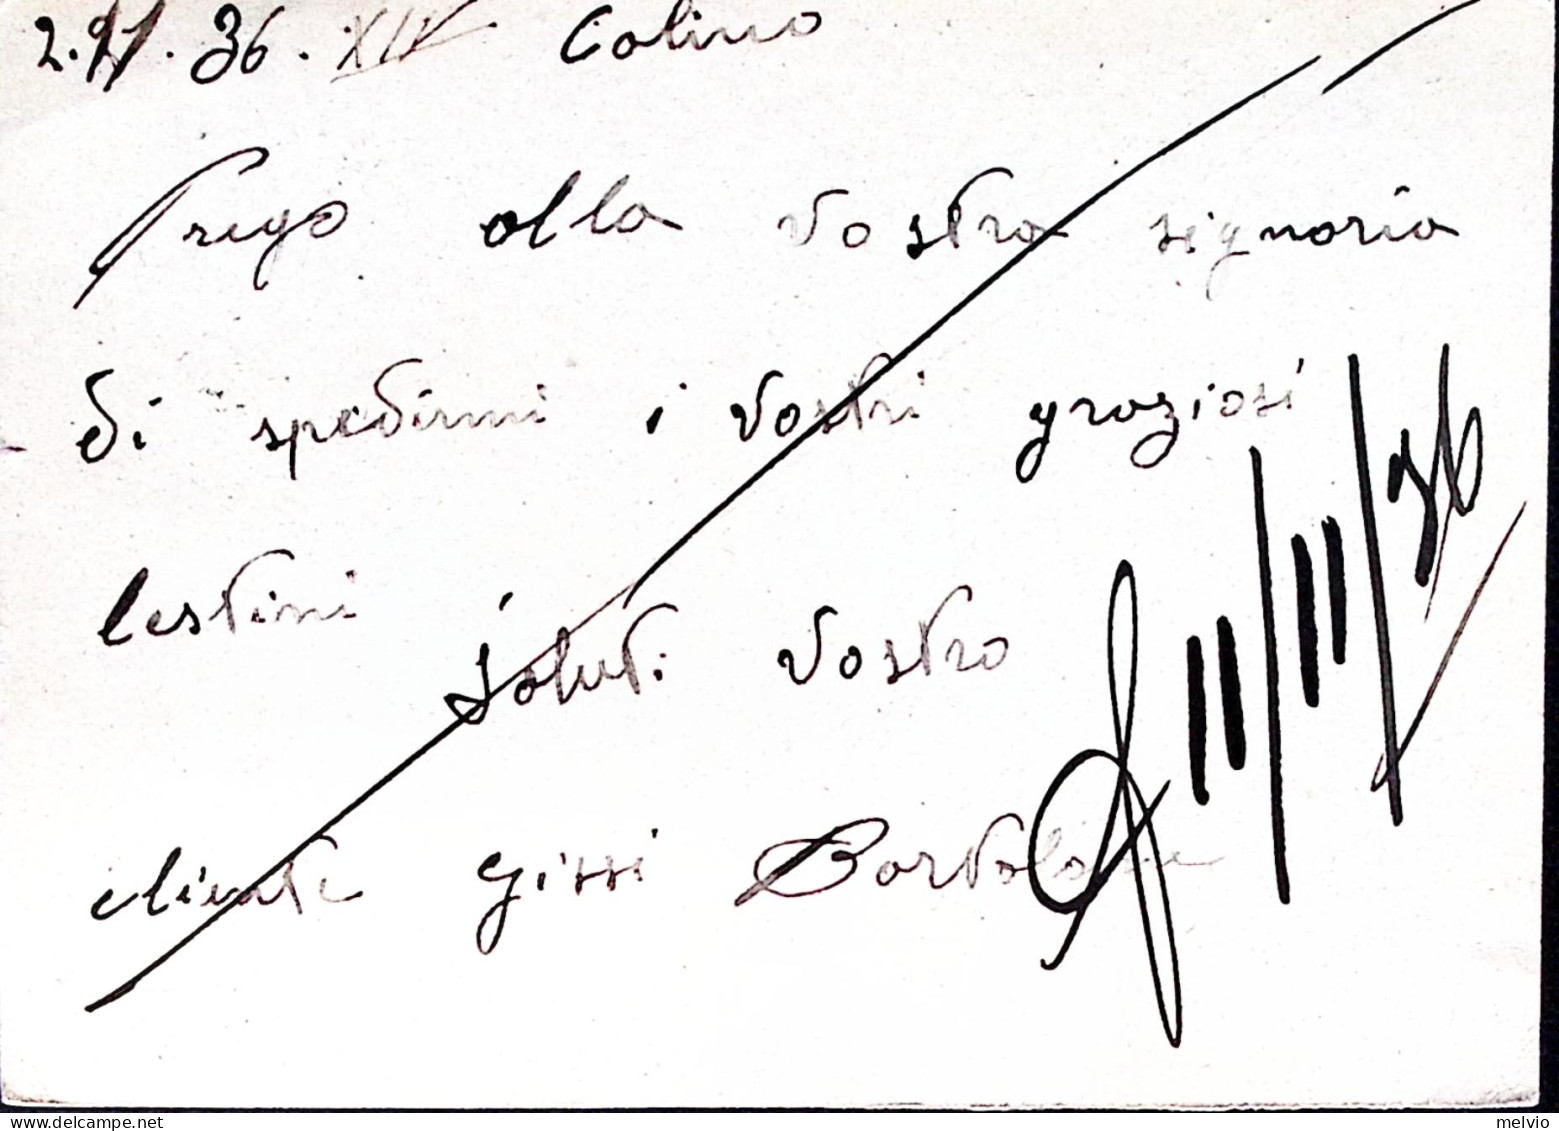 36. XIV Colino
Prego alla vostra signoria
di spedirmi i vostri graziosi
lestini saluti vostro
cliente gissi
II/III/36
melvio